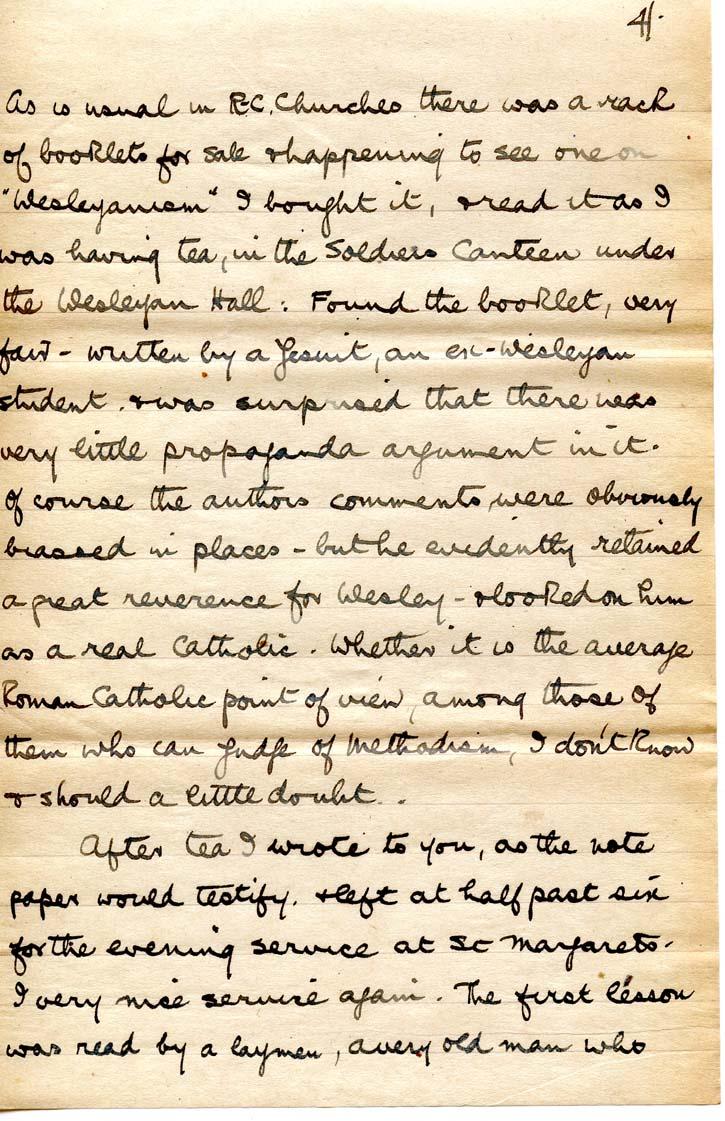 4/.
As is usual in R.C. Churches there was a rack
of booklets for sale & happening to see one on
"Wesleyanism" I bought it, & read it as I
was having tea, in the Soldiers Canteen under
the Wesleyan Hall: Found the booklet, very
fair - written by a Jesuit, an ex-Wesleyan
student. & was surprised that there was
very little propaganda argument in it.
Of course the authors comments were obviously
biassed in places - but he evidently retained
a great reverence for Wesley - & looked on him
as a real Catholic. Whether it is the average
Roman Catholic point of view, among those of
them who can judge of Methodism, I don't know
& should a little doubt..
After tea I wrote to you, as the note
paper would testify. & left at half past six
for the evening service at St Margarets.
I very nice service again. The first lesson
was read by a laymen, a very old man who